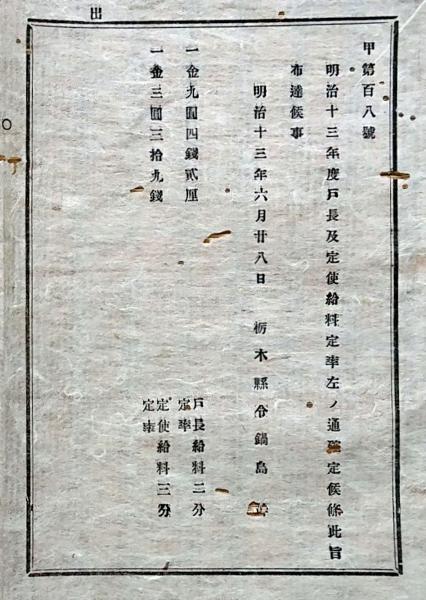 甲第百八號
明治十三年度戸長及定使給料定率左ノ通確定候條此旨
布達候事
明治十三年六月廿八日 栃木縣令鍋島
一金九圓四錢貳厘 戸長給料二分
定率
一金三圓三拾九錢 定使給料三分
定率
出